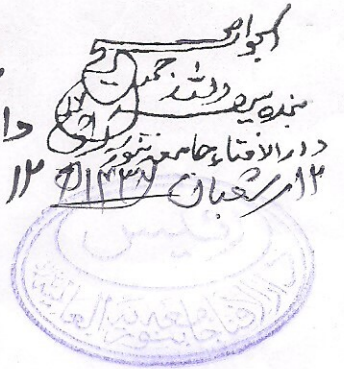 الجواب صحیح
بندہ سیف اللہ جمیل
دارالافتاء جامعہ بنوریہ
۱۲ / شعبان ۱۴۳۷ھ
دا
۱۲
رئیس
دارالافتاء جامعہ بنوریہ العالمیہ